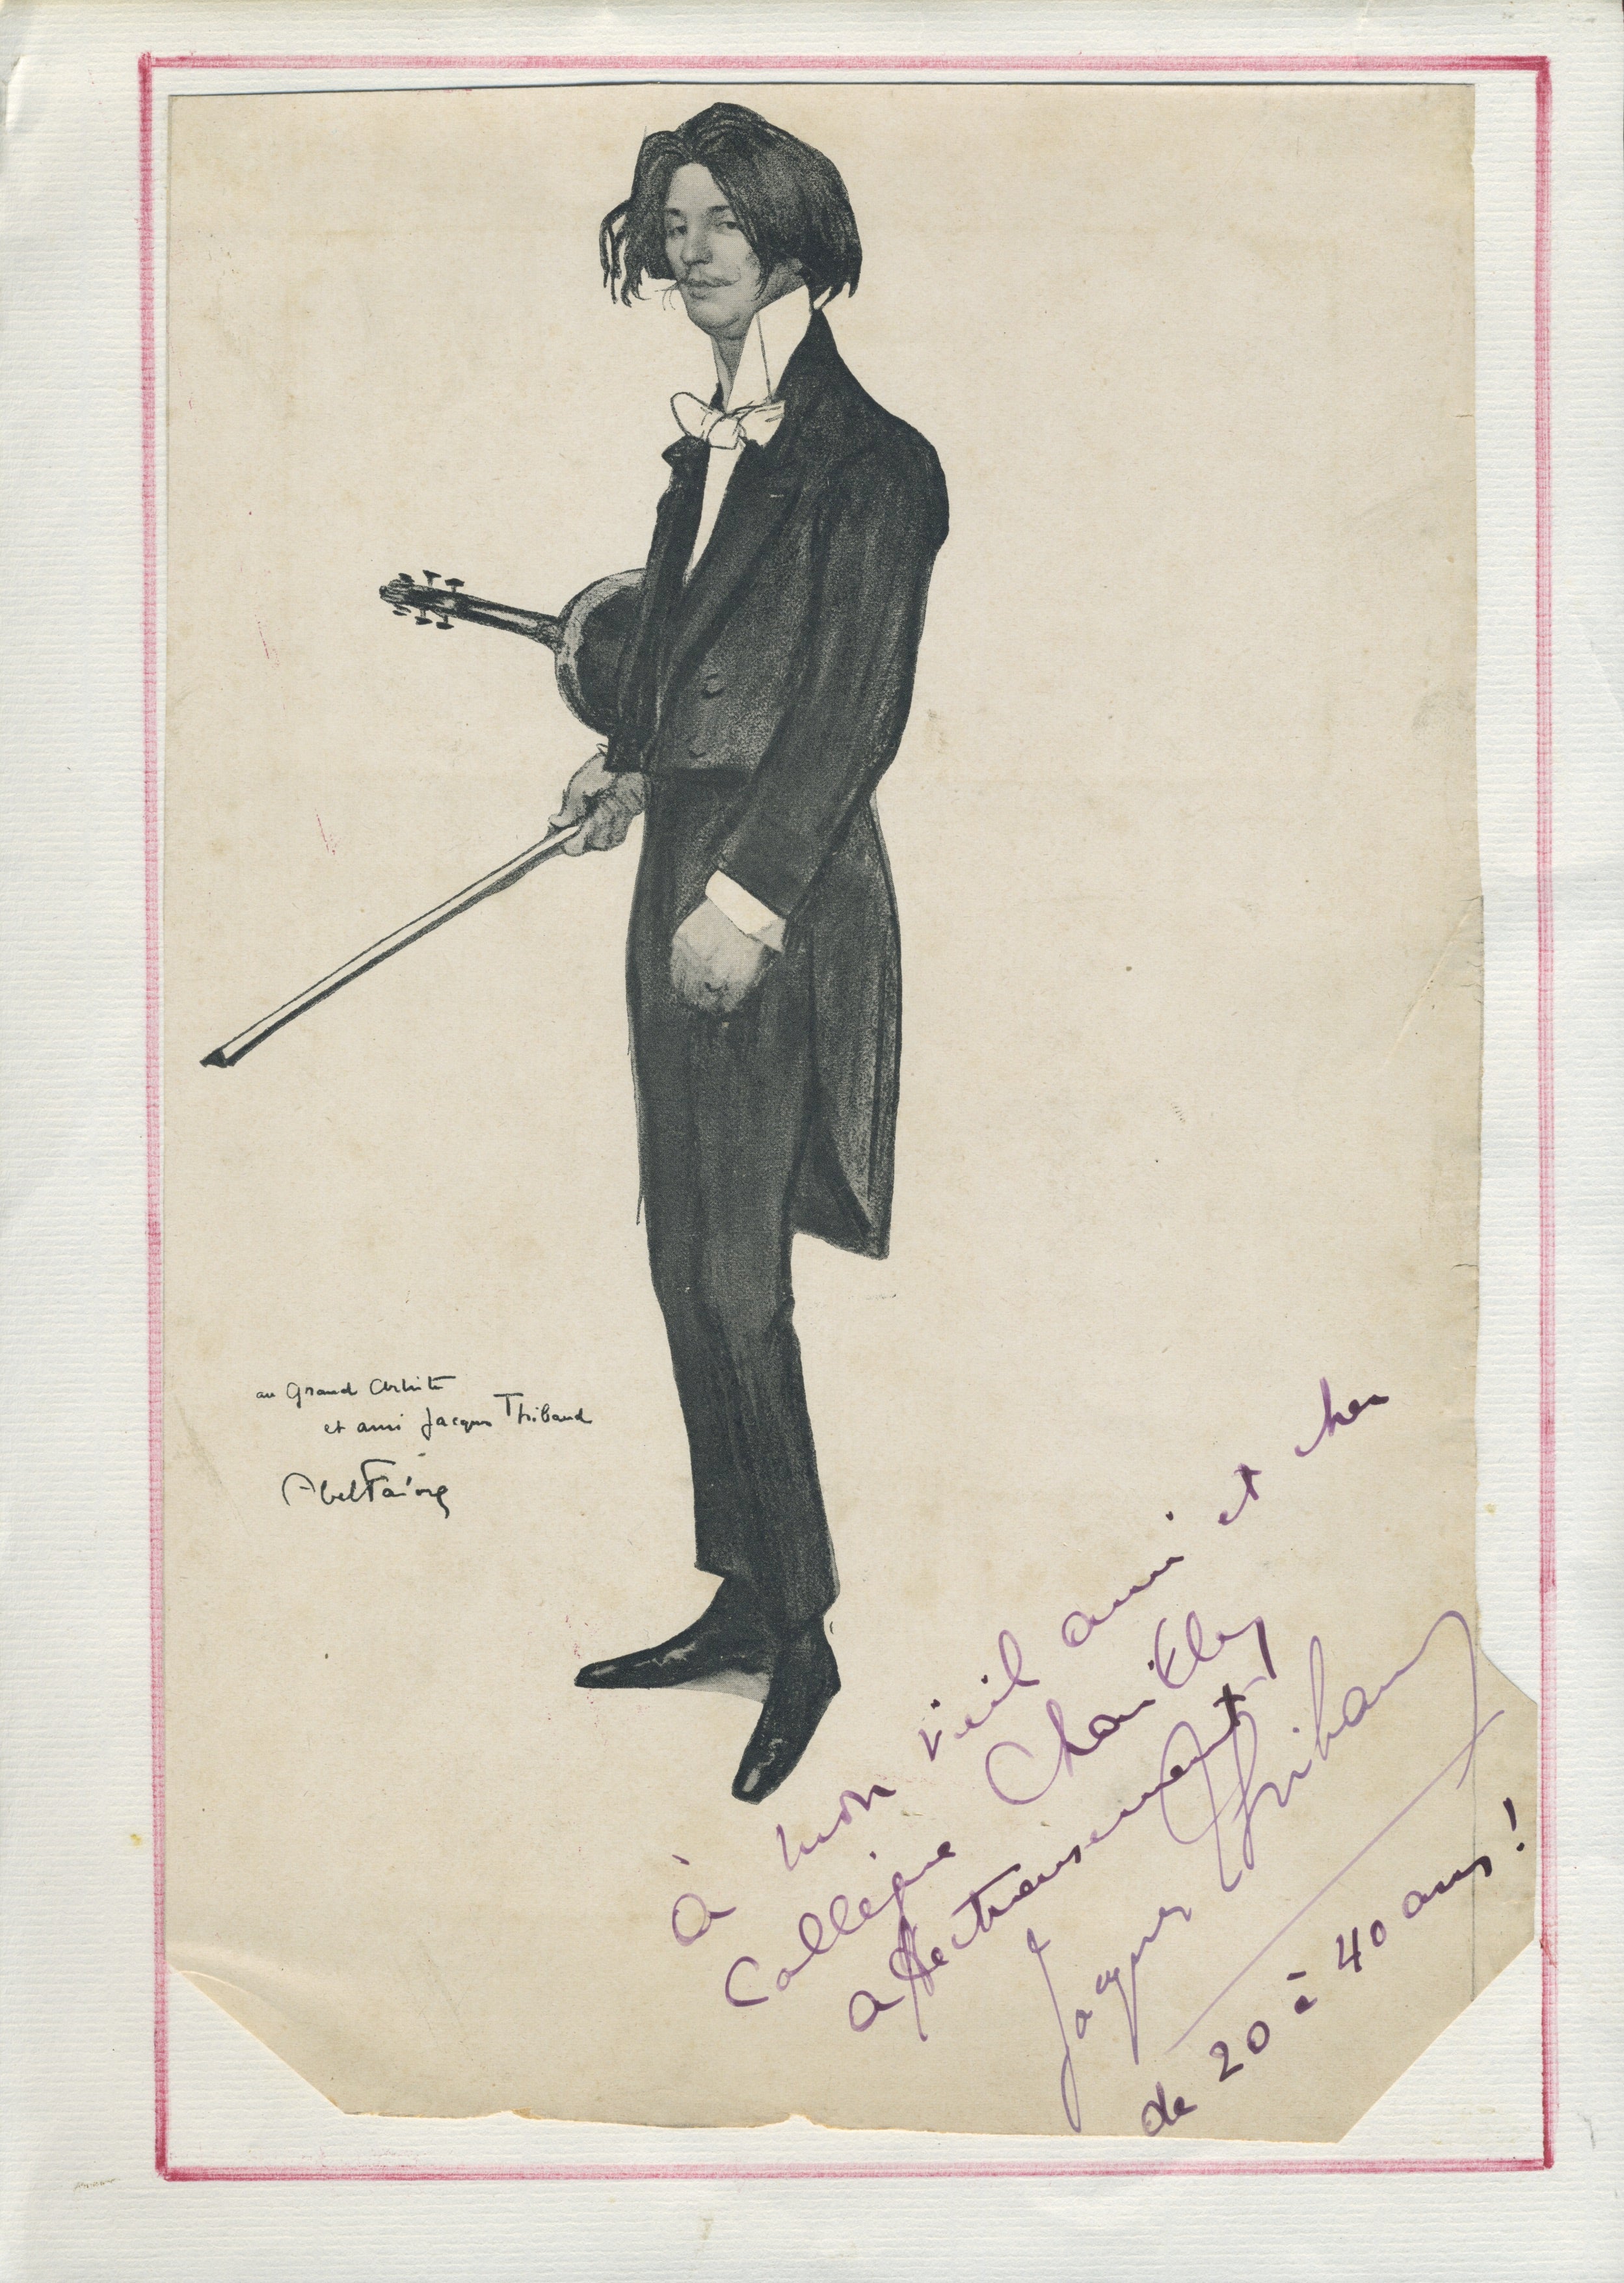 au Grand Artiste
et ami Jacques Thibaud
Abel Faivre
à mon vieil ami et cher
Collègue Chailley
affectueusement
Jacques Thibaud
de 20 à 40 ans !